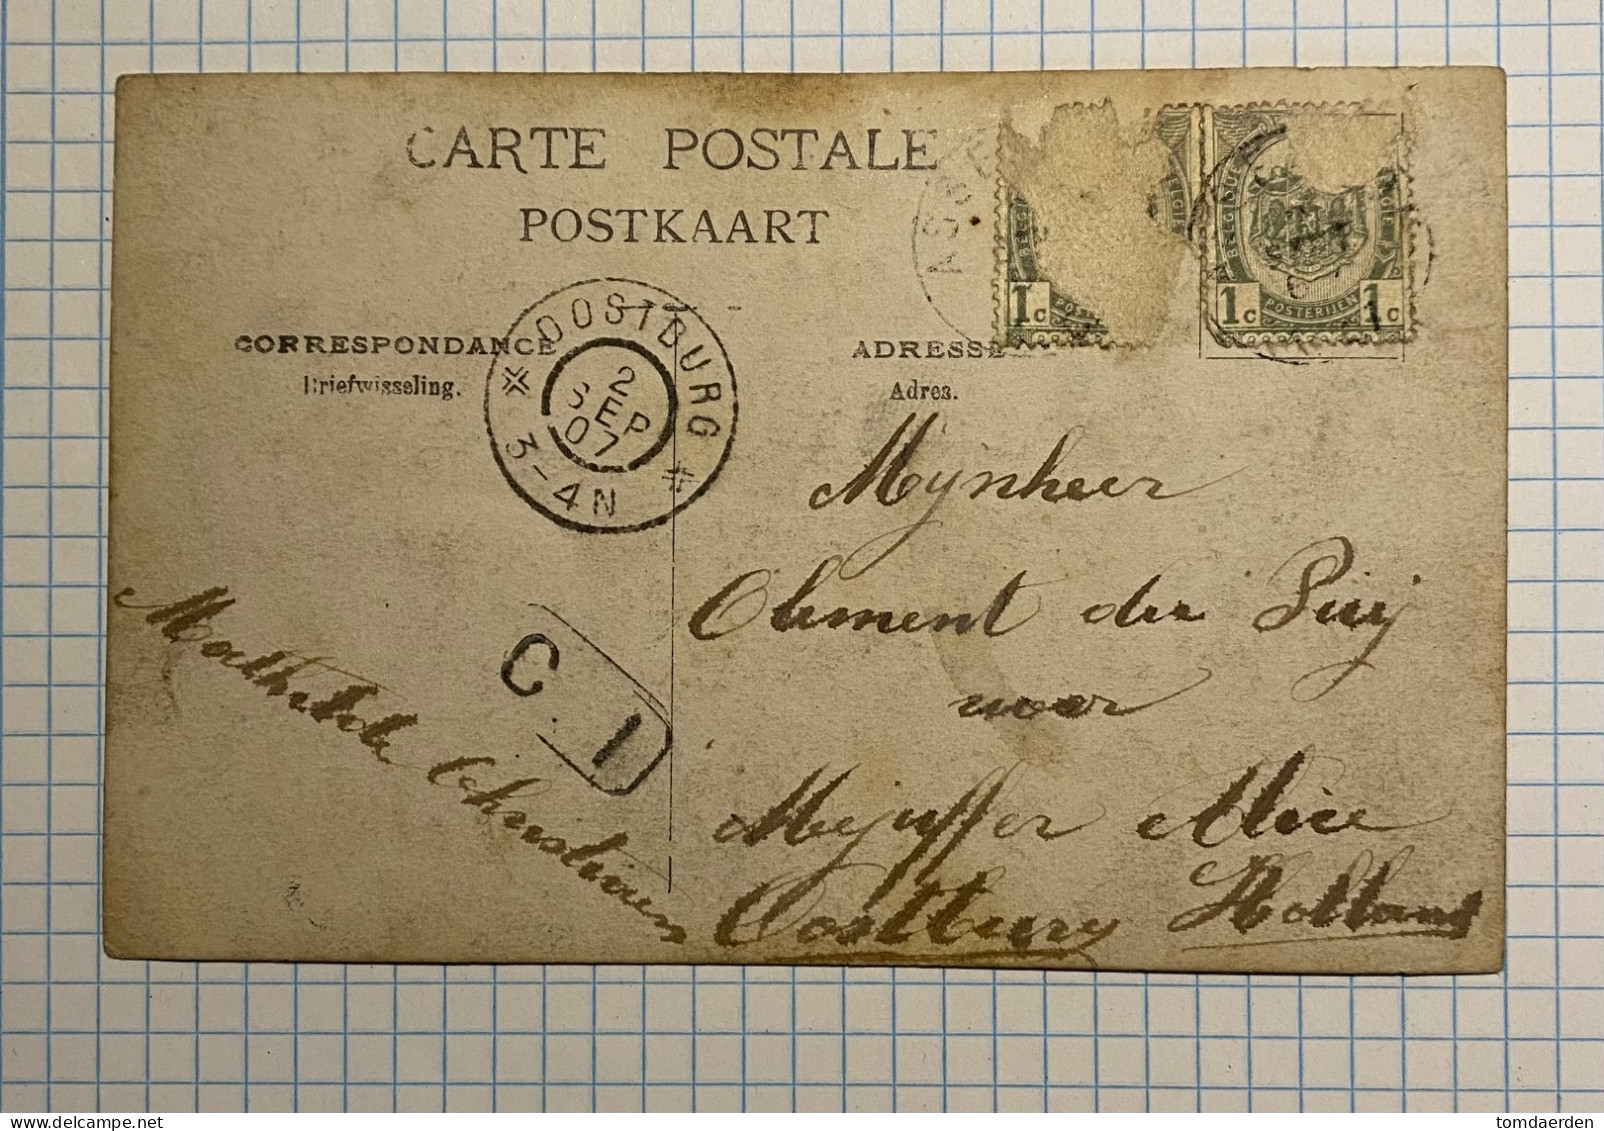 CARTE POSTALE
POSTKAART
CORRESPONDANCE
Briefwisseling.
ADRESSE
Adres.
OOSTBURG
2
SEP
07
3-4N
ASS
BELGIQUE
1c POSTERIJEN 1c
1c
C 1
Mynheer
Clement de Puij
voor
Mejuffer Alice
Oostburg Holland
Mathilde Christiaens
tomdaerden